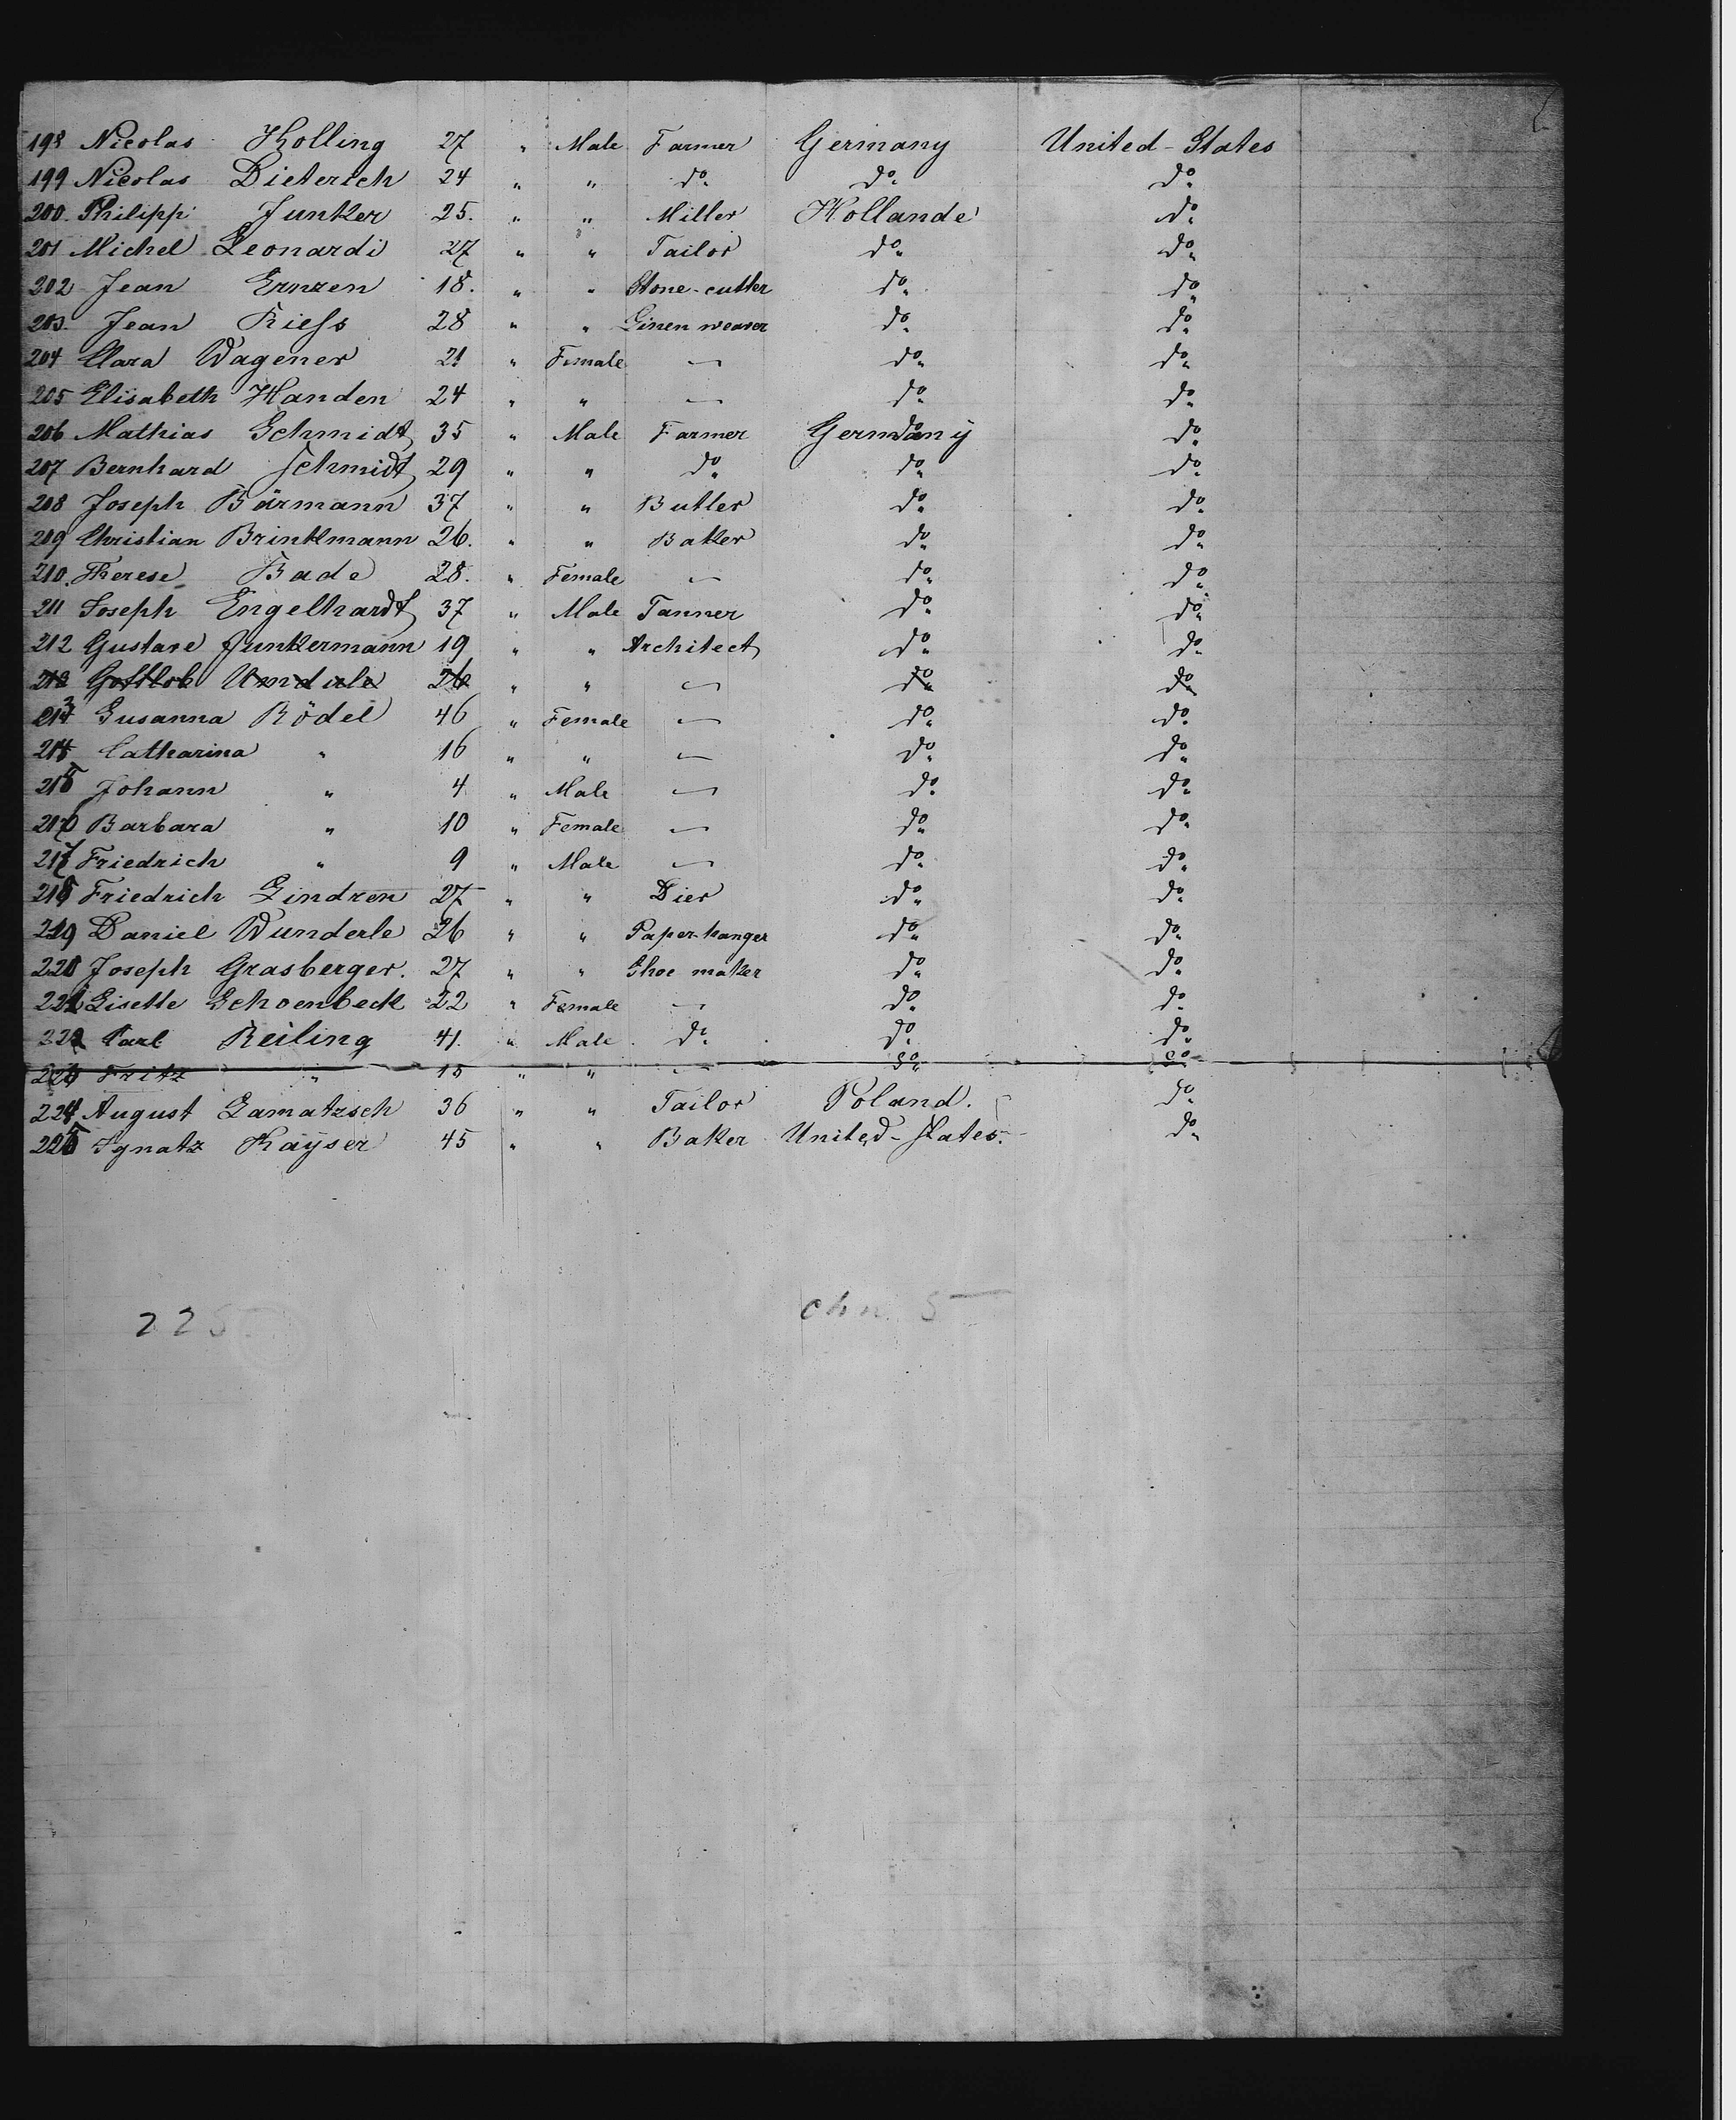 198 Nicolas Kolling 27 " Male Farmer Germany United-States
199 Nicolas Dieterich 24 " " do do do
200. Philipp Junker 25. " " Miller Hollande do
201 Michel Leonardi 27 " " Tailor do do
202 Jean Ernzen 18. " " Stone-cutter do do
203. Jean Kiefs 28 " " Linen weaver do do
204 Clara Wagener 21 " Female — do do
205 Elisabeth Handen 24 " " — do do
206 Mathias Schmidt 35 " Male Farmer Germany do
207 Bernhard Schmidt 29 " " do do do
208 Joseph Bärmann 37 " " Butler do do
209 Christian Brinkmann 26. " " Baker do do
210. Therese Bade 28. " Female — do do
211 Joseph Engelhardt 37 " Male Tanner do do
212 Gustave Junkermann 19 " " Architect do do
213 Gottlob 26 " " — do do
213 Susanna Rödel 46 " Female — do do
214 Catharina " 16 " " — do do
215 Johann " 4 " Male — do do
216 Barbara " 10 " Female — do do
217 Friedrich " 9 " Male — do do
218 Friedrich Lindzen 27 " " Dier do do
219 Daniel Wunderle 26 " " Paper-hanger do do
220 Joseph Grasberger. 27 " " Shoe maker do do
221 Lisette Schoenbeck 22 " Female — do do
222 Carl Reiling 41. " Male do do do
223 Fritz " 15 " " — do do
224 August Lamatzsch 36 " " Tailor Poland. do
225 Ignatz Kaÿser 45 " " Baker United-States. do
225 chn. 5